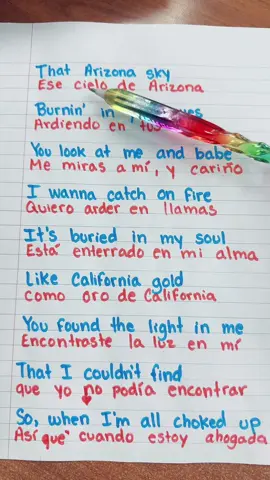 That Arizona sky
Ese cielo de Arizona
Burnin' in
Ardiendo en tus
You look at me and babe
Me miras a mí, y cariño
I wanna catch on fire
Quiero arder en llamas
It's buried in my soul
Está enterrado en mi alma
Like California gold
como oro de California
You found the light in me
Encontraste la luz en mí
That I couldn't find
que yo no podía encontrar
So, when I'm all choked up
Así que cuando estoy ahogada